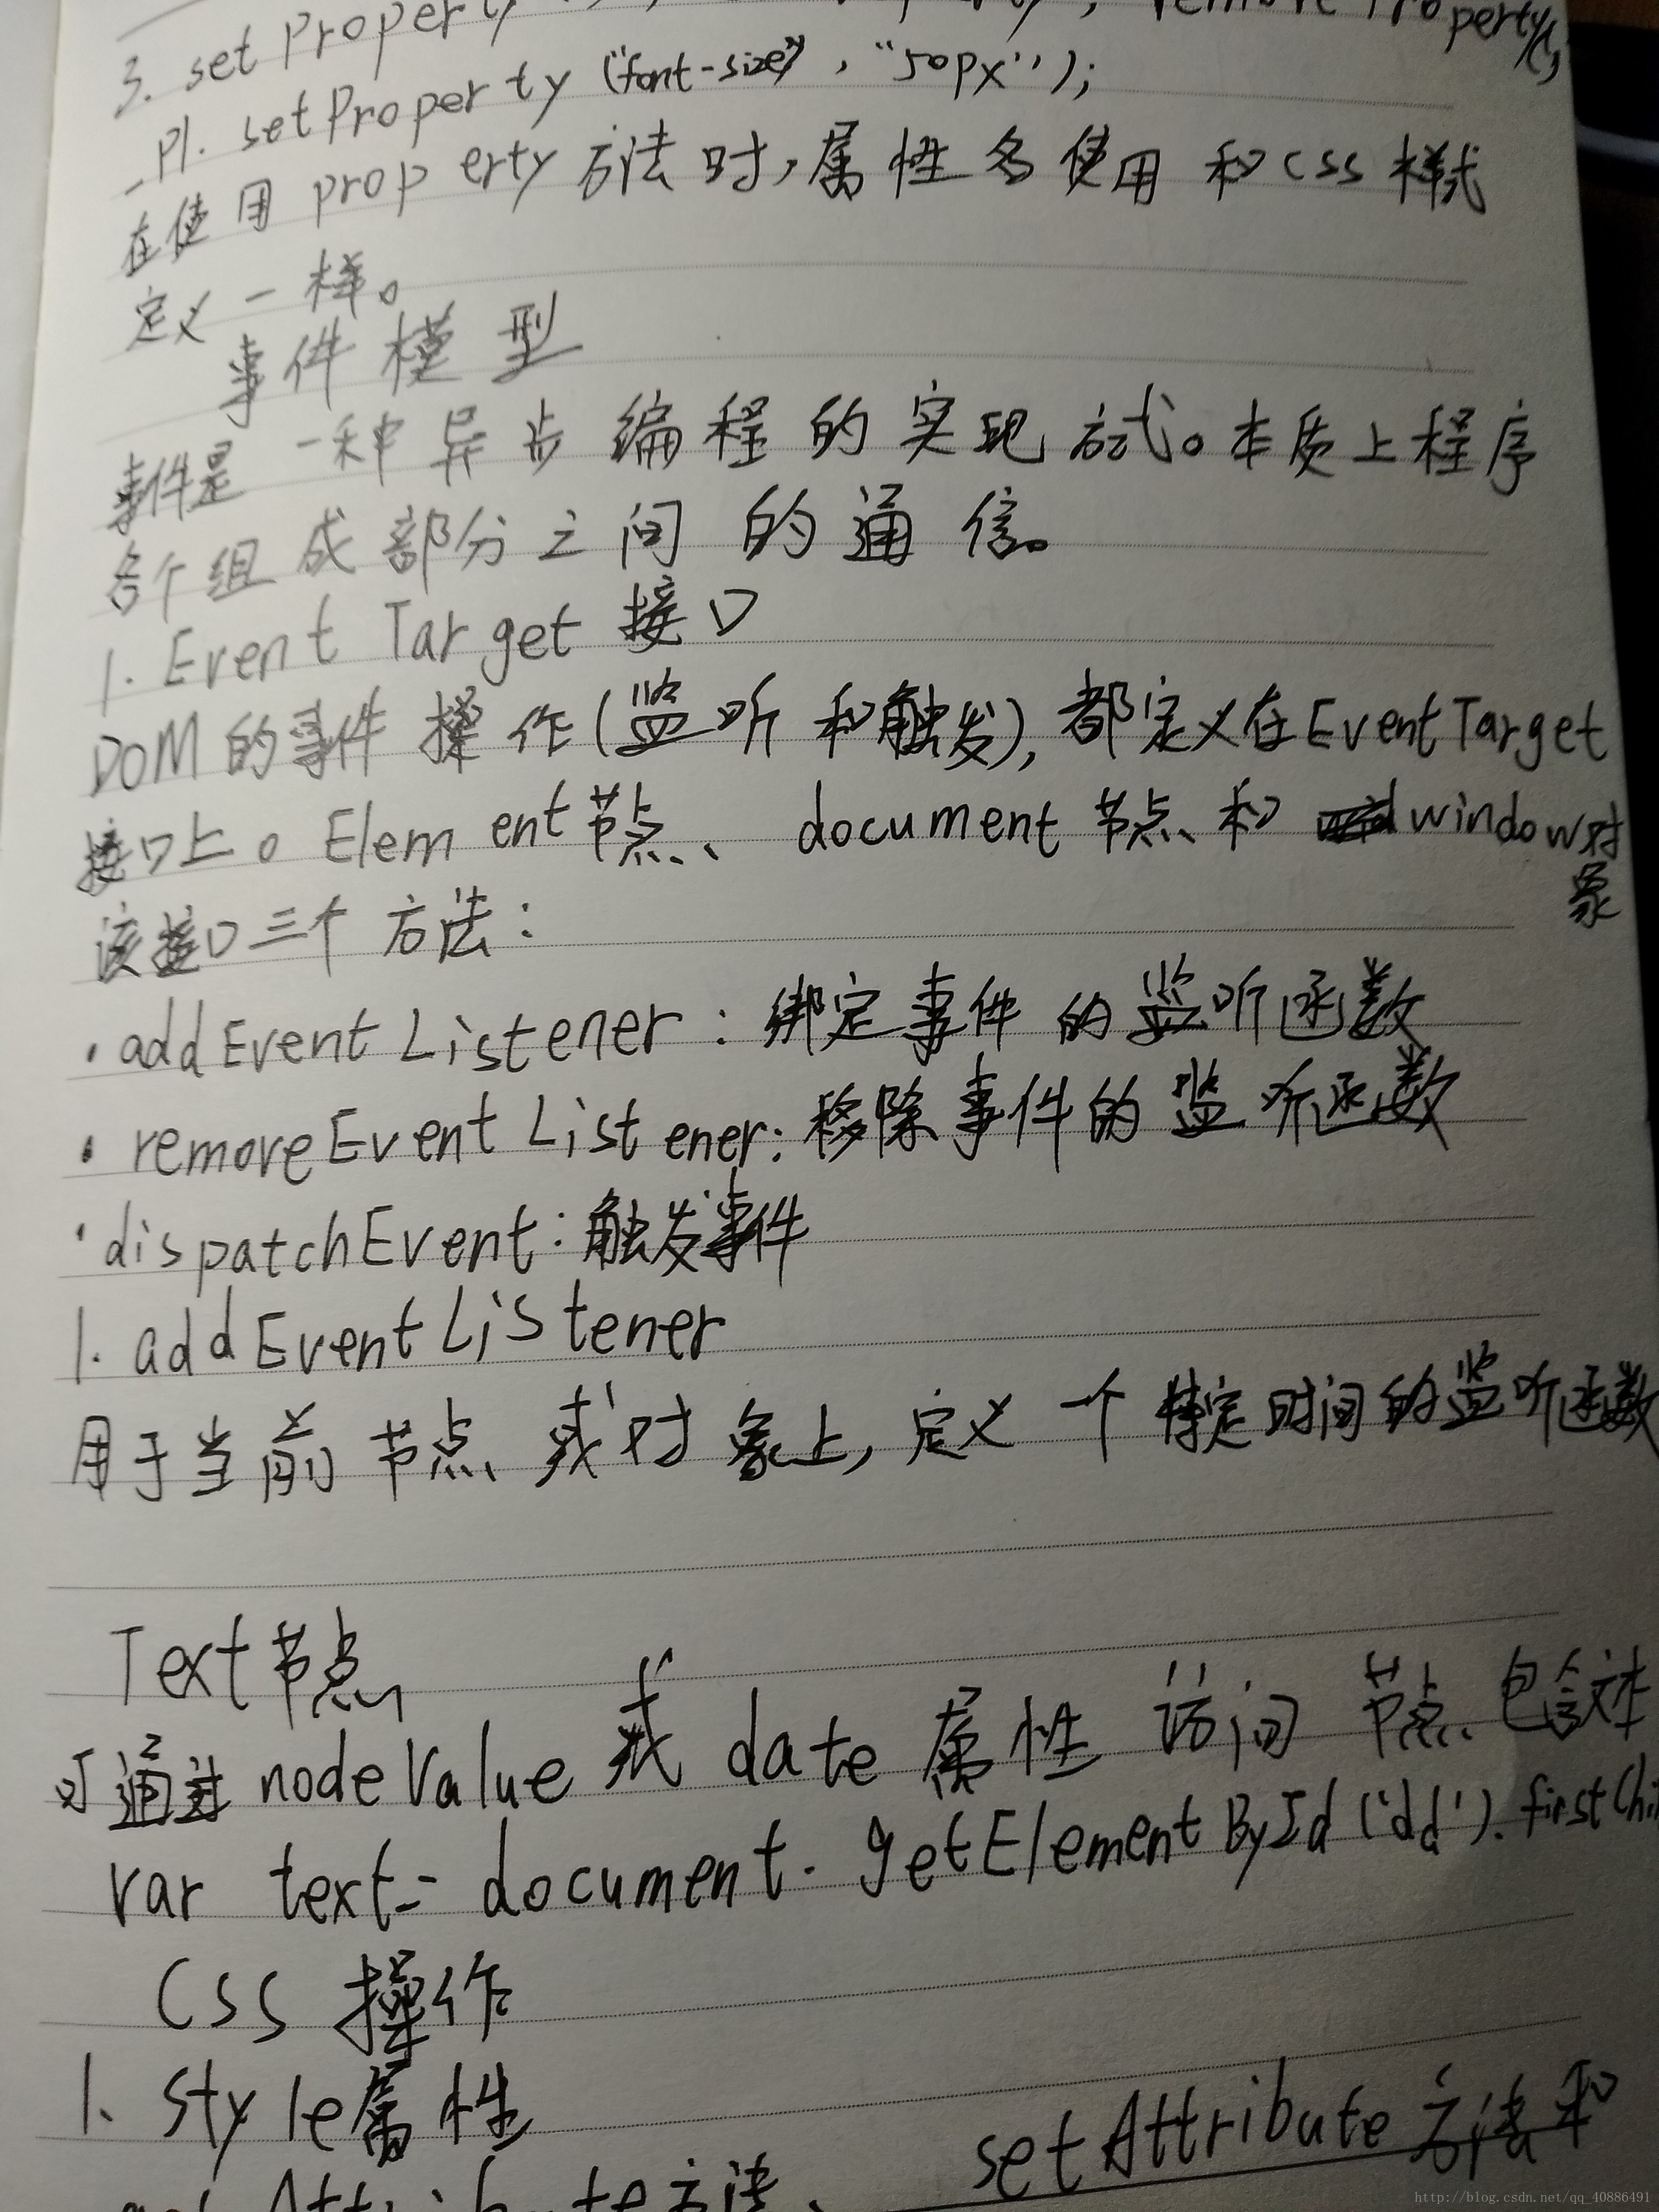 3. setProperty
P1. setProperty ("font-size", "50px");
在使用 property 方法时,属性名使用和css样式
定义一样。
事件模型
事件是一种异步编程的实现方式。本质上程序
各个组成部分之间的通信。
1. Event Target 接口
DOM的事件操作(监听和触发),都定义在EventTarget
接口上。Element节点、document节点和window对
象
该接口三个方法:
·addEventListener:绑定事件的监听函数
·removeEventListener:移除事件的监听函数
·dispatchEvent:触发事件
1. addEventListener
用于当前节点或对象上,定义一个特定时间的监听函数
Text节点
可通过nodeValue或date属性访问节点包含文本
var text= document.getElementById('dd').firstChi
Css 操作
1、style属性
setAttribute方法和
http://blog.csdn.net/qq_40886491